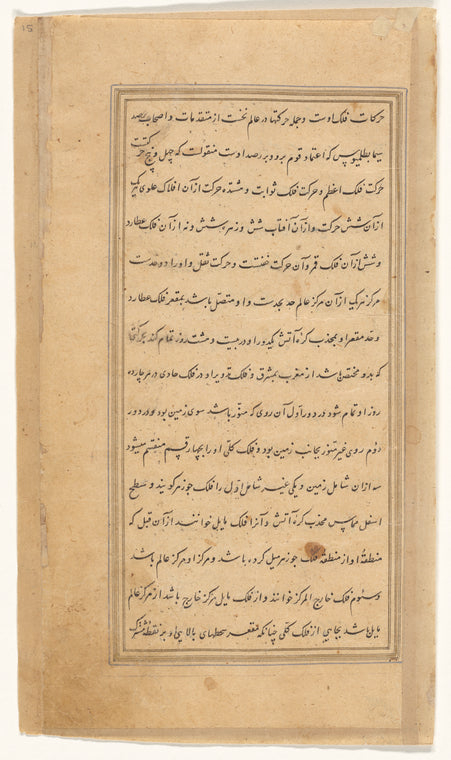 حرکات فلک اوست و جمله حرکتها در عالم نخست از متقدمات و اصحاب رصد
سیما بطلمیوس که اعتماد قوم برو و بر رصد اوست منقولست که چهل و پنج حرکتست
حرکت فلک اعظم و حرکت فلک ثوابت و حرکت ازان افلاک علوی
ازان شش حرکت و ازان آفتاب شش و زهره شش و نه ازان فلک عطارد
و شش ازان فلک قمر و آن حرکت ثقل و او را دو حدست
مرکز هر یک ازان مرکز عالم حد بجدست و او متصل باشد بمقعر فلک عطارد
و حد مقعر او بمحدب کره آتش یکدور او در بیست و هشت روز تمام کند بحرکتها
که بدو مختص باشد از مغرب بمشرق و فلک تدویر او در فلک حاوی در هر چارده
روز او تمام شود در دور اول آن روی که منور باشد سوی زمین بود و در دور
دوم روی غیر منور بجانب زمین بود و فلک کلی او را بچهار قسم منقسم میشود
سه ازان شامل زمین و یکی غیر شامل اول را فلک جوزهر گویند و سطح
اسفل مماس محدب کره آتش و آنرا فلک مایل خوانند از آن قبل که
منطقه او از منطقه فلک جوزهر میل کرده باشد و مرکز او مرکز عالم باشد
و سیوم فلک خارج المرکز خوانند و از فلک مایل مرکز خارج باشد از مرکز عالم
مایل باشد بجانبی از فلک کلی چنانکه مقعر سطحهای بالایی او بر نقطه مشترک
15